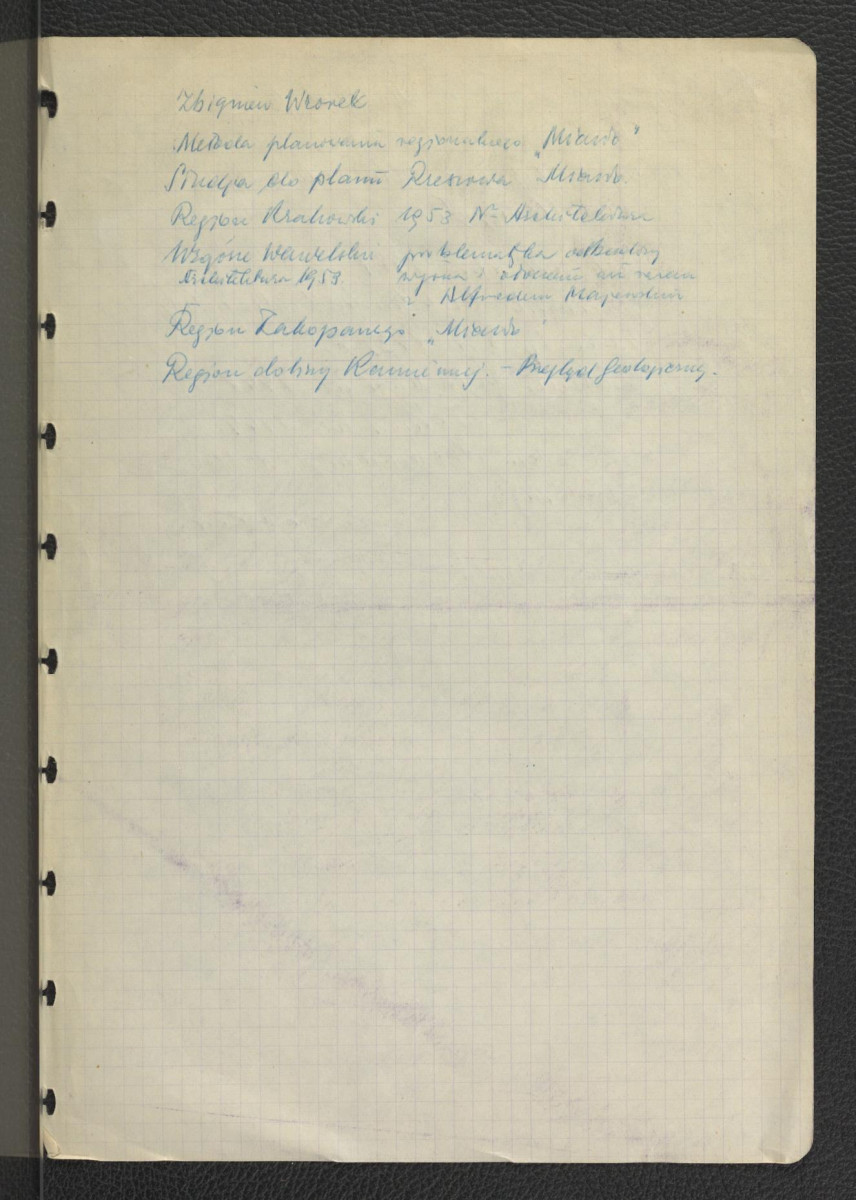 Zbigniew Wzorek
Metoda planowania regionalnego „Miasto"
Studja do planu Rzeszowa Miasto.
Region Krakowski 1953 Nr Architektura
Wzgórze Wawelskie problematyka odbudowy
Architektura 1953 razem
z Alfredem Majewskim
Region Zakopanego „Miasto"
Region doliny Kamiennej. – Przegląd Geologiczny.